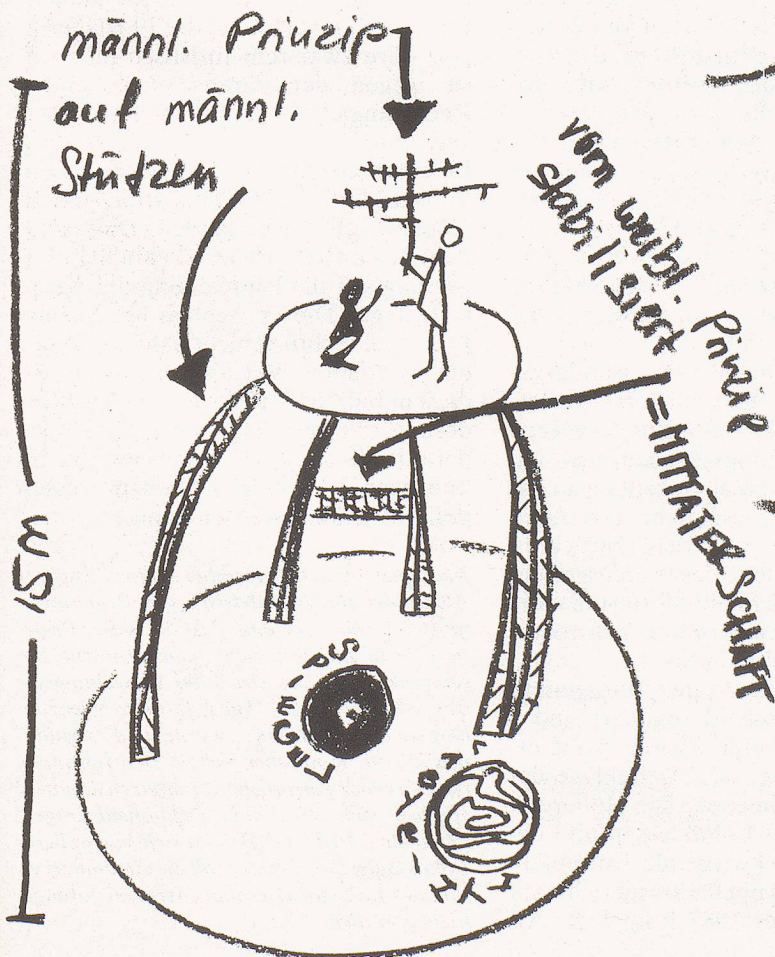 männl. Prinzip
auf männl.
Stützen
vom weibl. Prinzip
stabilisiert
= MITTÄTERSCHAFT
15 m
SPIEGEL